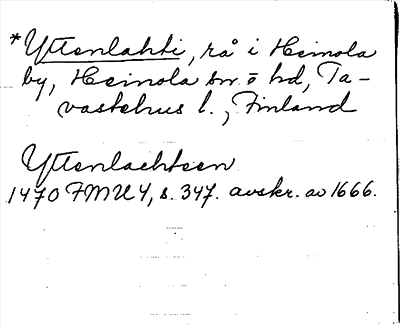 *Yttenlahti, rå i Heinola
by, Heinola sn. o hd, Ta-
vastehus l., Finland
Yttenlachteen
1470 FMU 4, s. 347. avskr. av 1666.